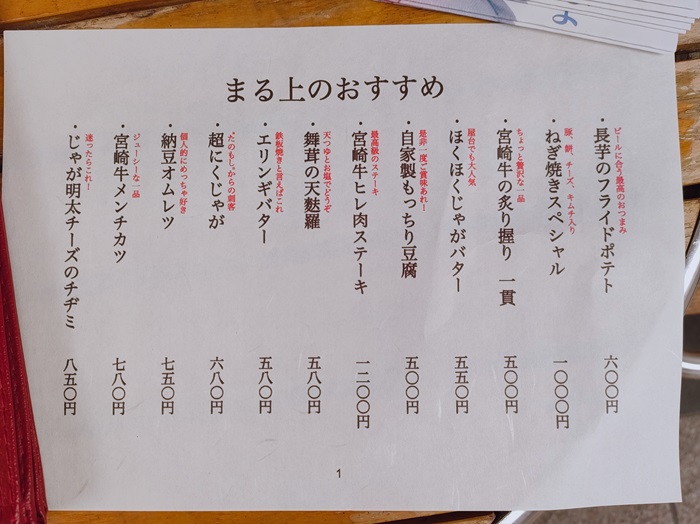 まる上のおすすめ
ビールに合う最高のおつまみ
・長芋のフライドポテト 六〇〇円
豚、餅、チーズ、キムチ入り
・ねぎ焼きスペシャル 一〇〇〇円
ちょっと贅沢な一品
・宮崎牛の炙り握り 一貫 五〇〇円
屋台でも大人気
・ほくほくじゃがバター 五五〇円
是非一度ご賞味あれ!
・自家製もっちり豆腐 五〇〇円
最高級のステーキ
・宮崎牛ヒレ肉ステーキ 一二〇〇円
天つゆとお塩でどうぞ
・舞茸の天麩羅 五八〇円
鉄板焼きと言えばこれ
・エリンギバター 五八〇円
"たのもし"からの刺客
・超にくじゃが 六八〇円
個人的にめっちゃ好き
・納豆オムレツ 七五〇円
ジューシーな一品
・宮崎牛メンチカツ 七八〇円
迷ったらこれ!
・じゃが明太チーズのチヂミ 八五〇円
1